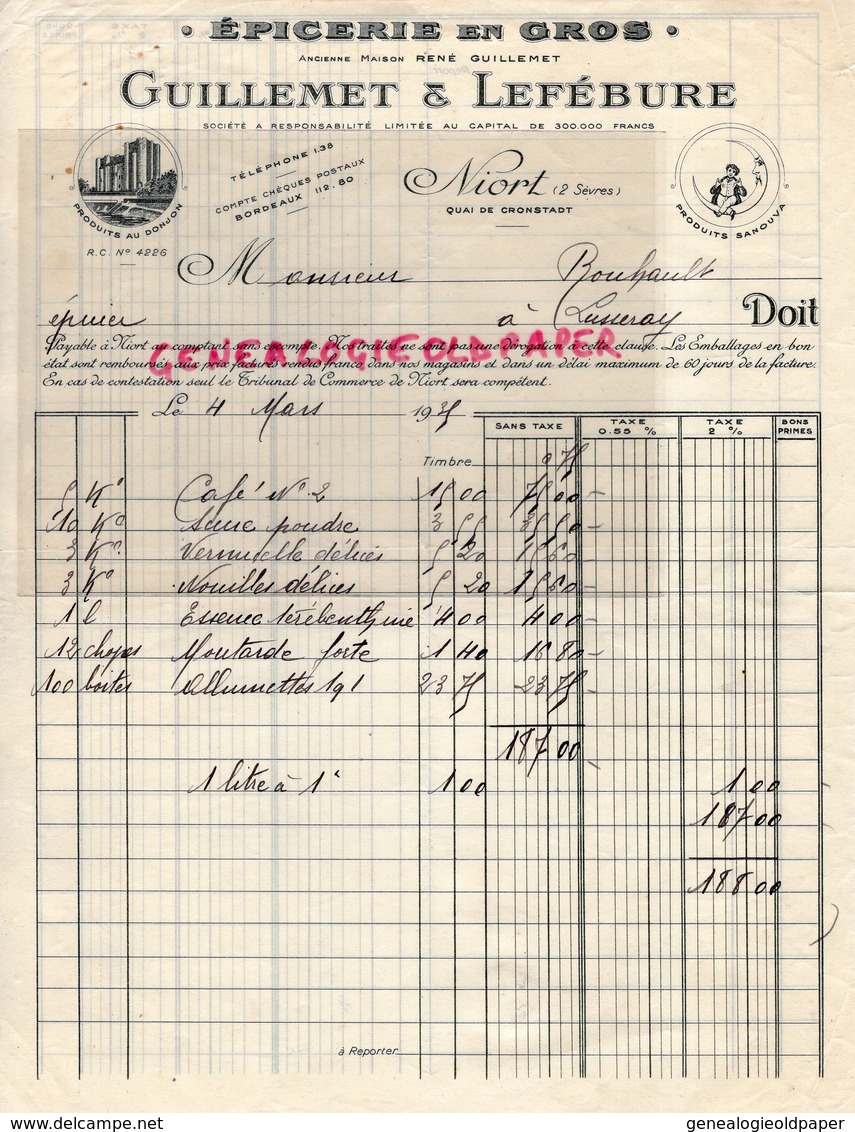 • ÉPICERIE EN GROS •
ANCIENNE MAISON RENÉ GUILLEMET
GUILLEMET & LEFÉBURE
SOCIÉTÉ A RESPONSABILITÉ LIMITÉE AU CAPITAL DE 300.000 FRANCS
PRODUITS AU DONJON
R.C. Nº 4226
TÉLÉPHONE 1.38
COMPTE CHÈQUES POSTAUX
BORDEAUX 112.80
Niort (2 Sèvres)
QUAI DE CRONSTADT
PRODUITS SANOUVA
Monsieur Bouhault
épicier à Lusseray Doit
Payable à Niort au comptant sans escompte. Nos traites ne sont pas une dérogation à cette clause. Les Emballages en bon
état sont remboursés aux prix facturés rendus franco dans nos magasins et dans un délai maximum de 60 jours de la facture.
En cas de contestation seul le Tribunal de Commerce de Niort sera compétent.
GENEALOGIEOLDPAPER
Le 4 Mars 1935
SANS TAXE TAXE 0.55 % TAXE 2 % BONS PRIMES
Timbre 0 75
5 Kº Café Nº 2 15 00 75 00
10 Kº poudre 3 55 35 50
3 Kº Vermicelle délices 5 20 15 60
3 Kº Nouilles délices 5 20 15 60
1 l Essence térébenthine 4 00 4 00
12 chopes Moutarde forte 1 40 16 80
100 boites Allumettes 23 75 23 75
187 00
1 litre à 1 1 00 1 00
187 00
188 00
à Reporter
genealogieoldpaper